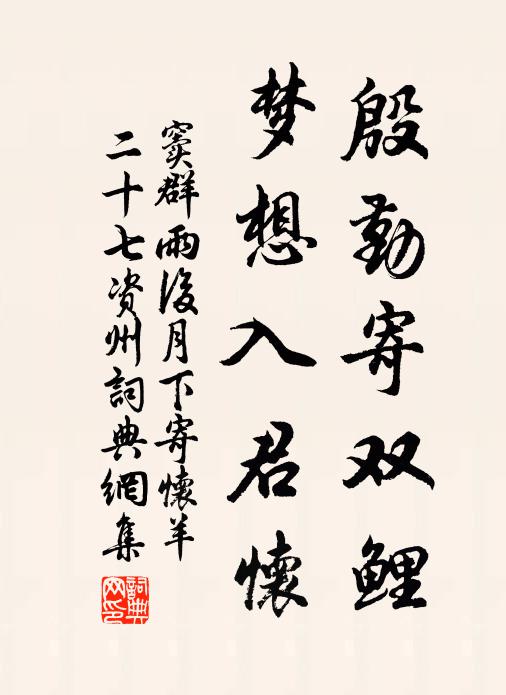 殷勤寄双鲤
梦想入君懷
窦群雨後月下寄懷羊
二十七资州詞典網集
詞典网印